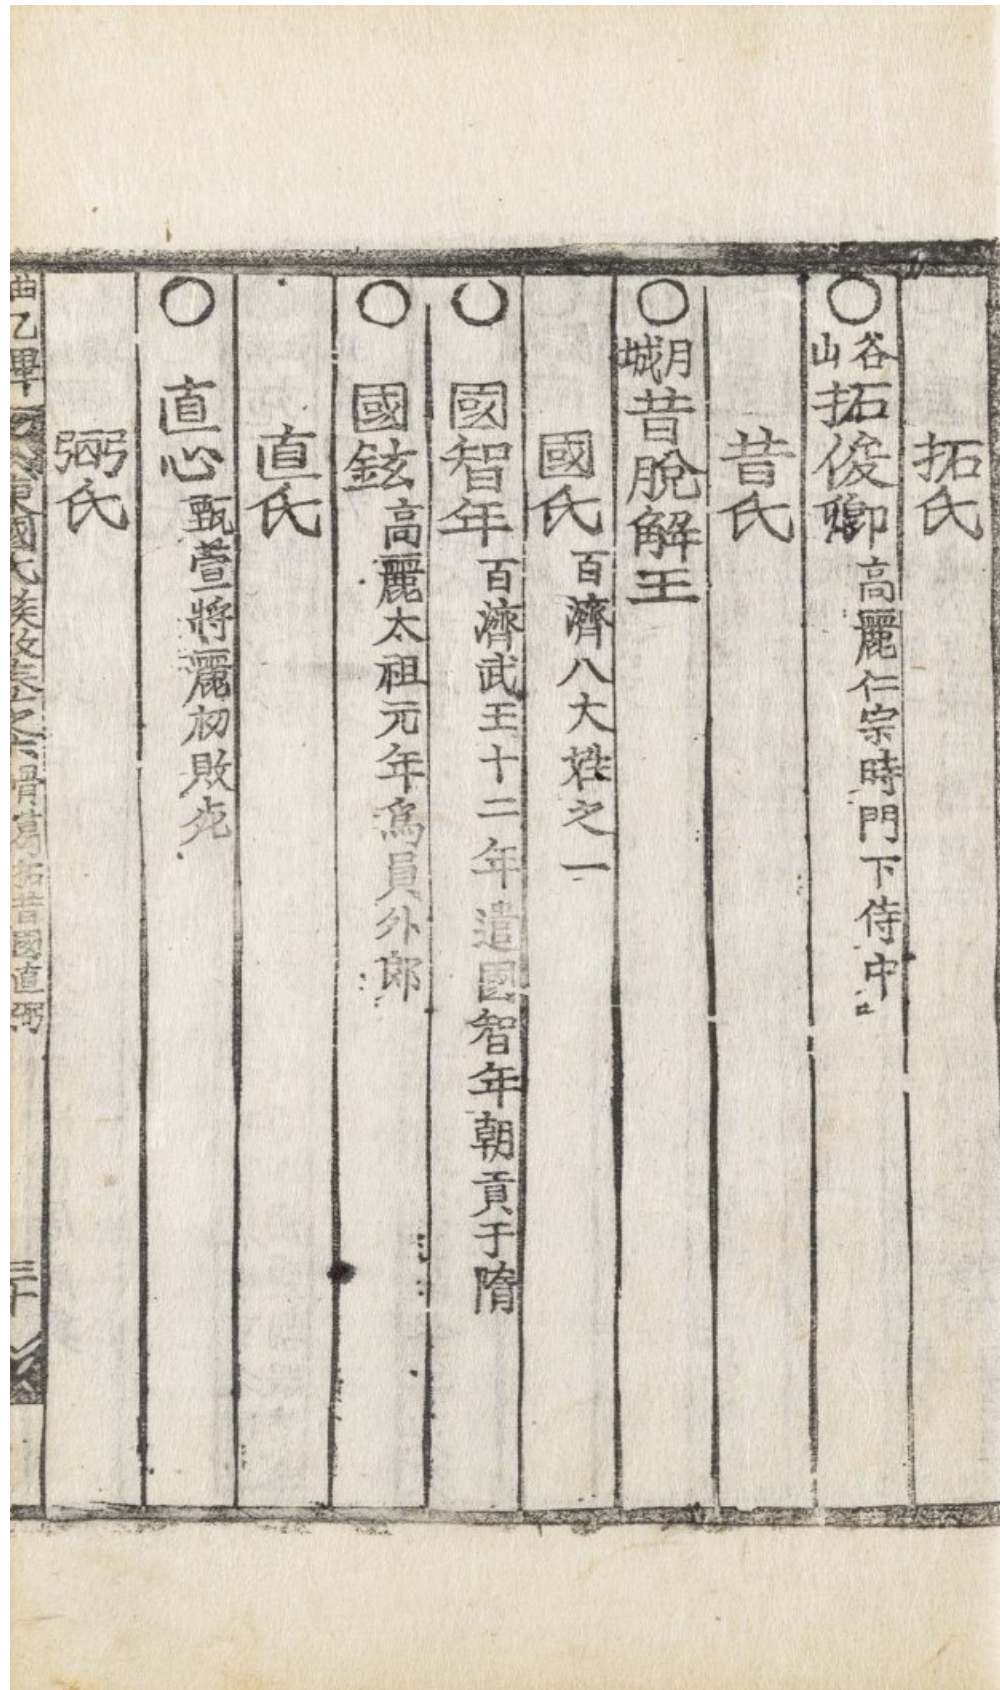 拓氏
○谷山拓俊卿高麗仁宗時門下侍中
昔氏
○月城昔脫解王
國氏百濟八大姓之一
○國智年百濟武王十二年遣國智年朝貢于隋
○國鉉高麗太祖元年爲員外郎
直氏
○直心甄萱將麗初敗死
弼氏
東國氏族攷卷之六骨葛拓昔國直弼
三十